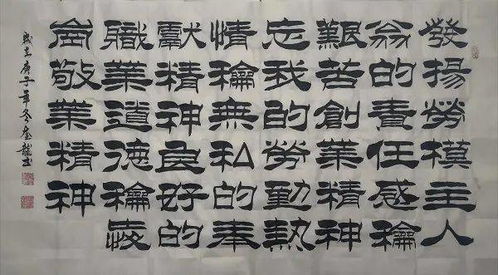 發揚勞模主人
翁的責任感龢
艱苦創業精神
忘我的勞動熱
情龢無私的奉
獻精神良好的
職業道德龢愛
崗敬業精神
歲在庚子年冬龍書